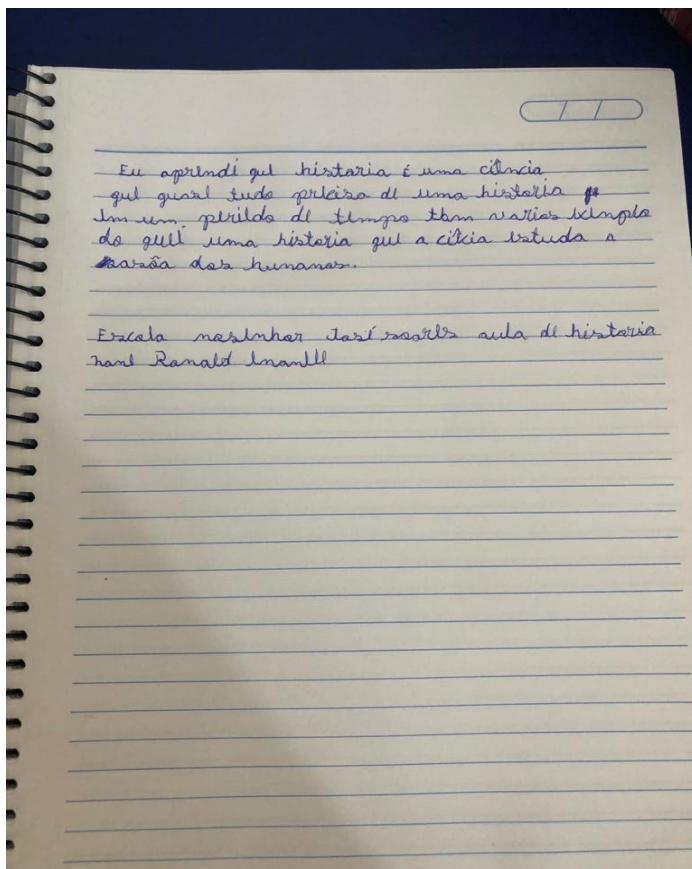 Eu aprendí que historia é uma ciência
que quase tudo precisa de uma historia
em um perildo de tempo tbm varios exemplo
do que é uma historia que a ciêcia estuda a
razõa dos humanos.
Escola mosinhor José soares aula de historia
nome Ronald Emanuel